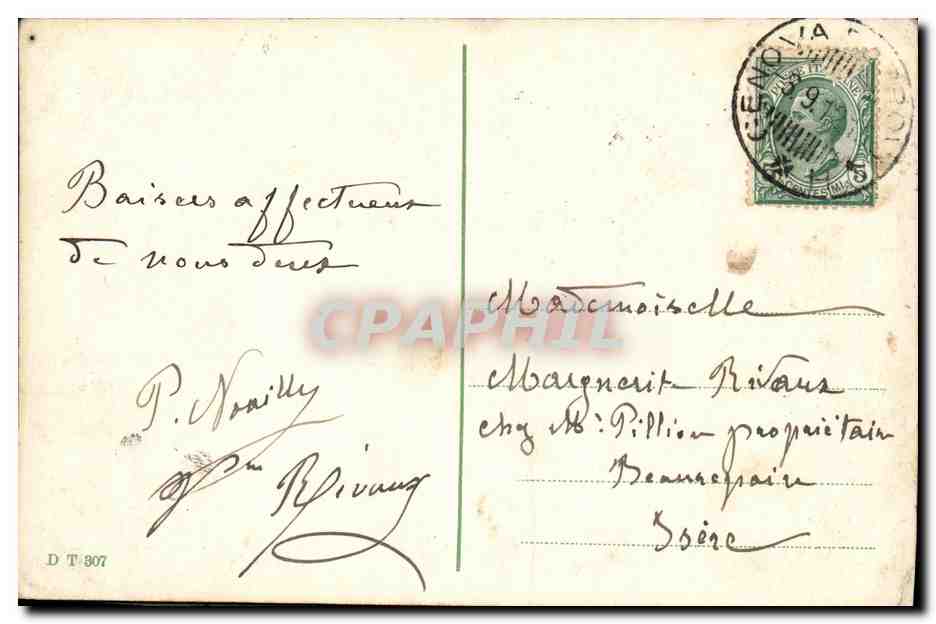 Baisers affectueux
de nous deux
P. Noailly
Rivaux
D T 307
GENOVA
9.1
POSTE ITALIANE
CENTESIMI 5
Mademoiselle
Marguerite Rivaux
chez Mr. Pillion propriétaire
Beaurepaire
Isère
CPAPHIL